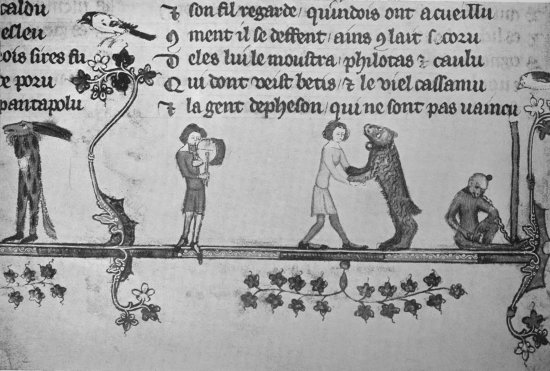 caldu
esleu
ois sires fu
de poru
pantapolu
⁊ son fil regarde / quindois ont acueillu
ꝯment il se deffent / ains ꝯ lait secoru
D eles lui le moustra / philotas ⁊ caulu
Q ui dont veist betis / ⁊ le viel cassamu
⁊ la gent depheson / qui ne sont pas vaincu